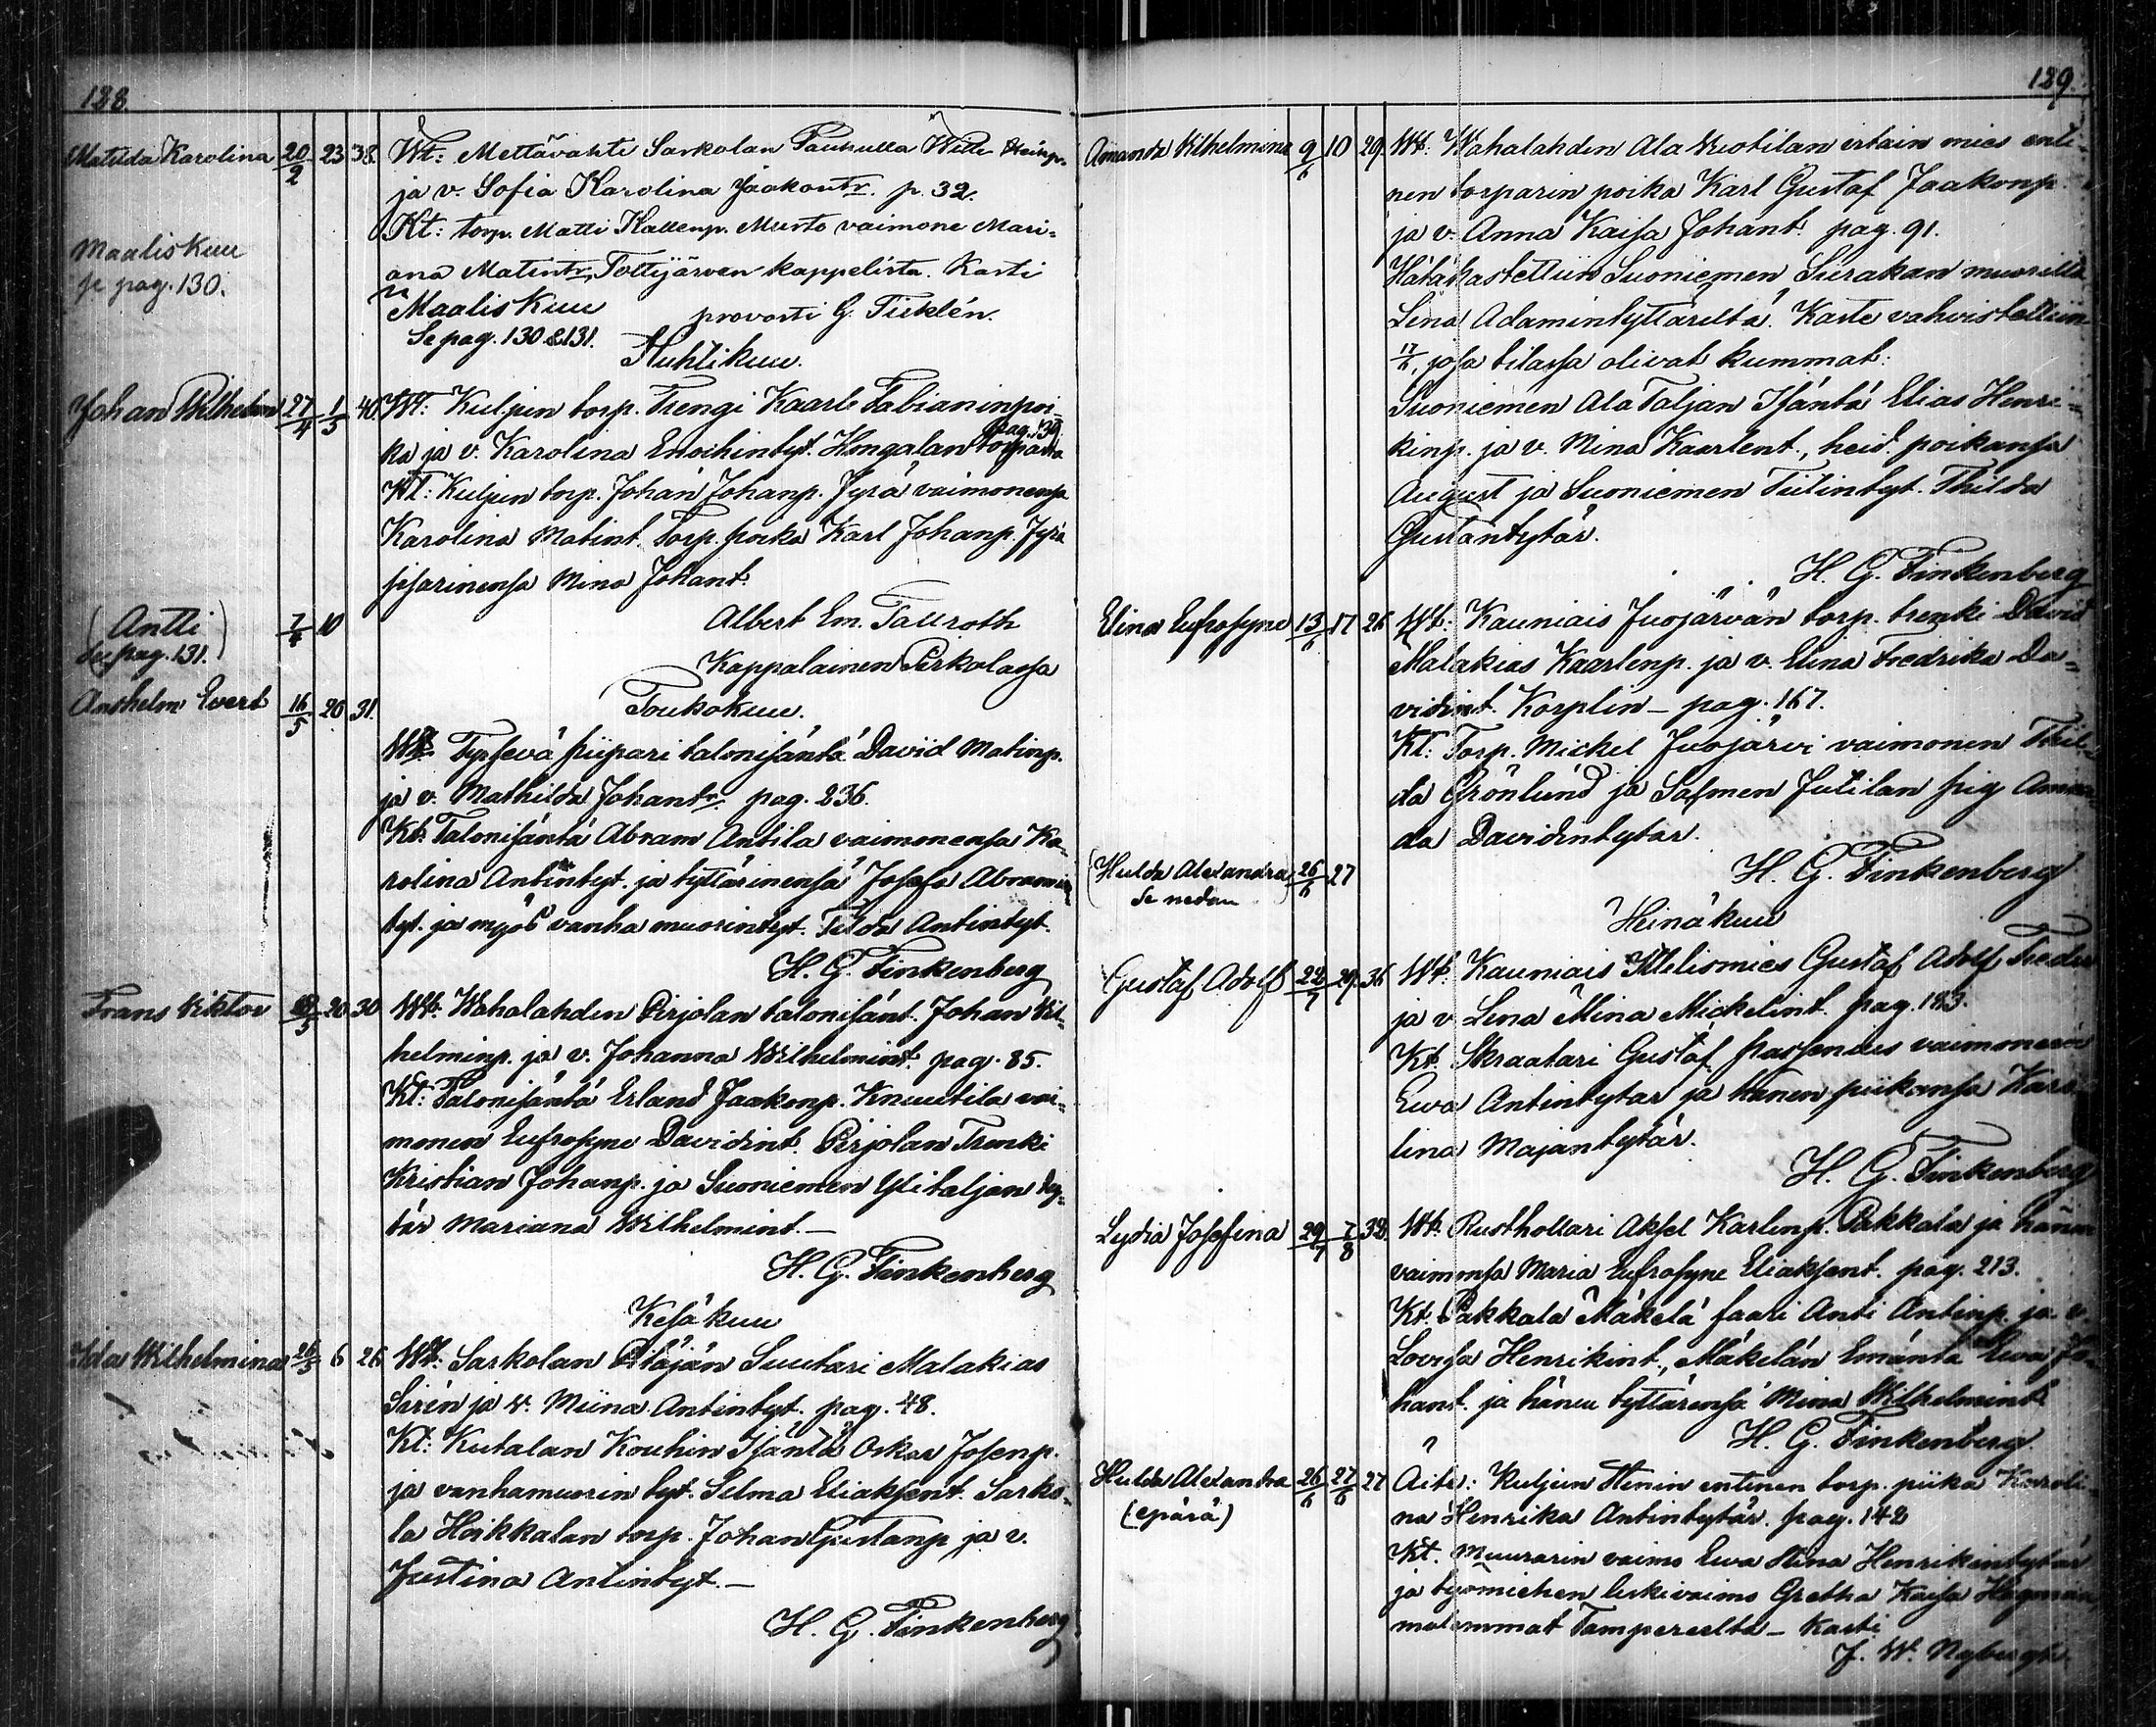 128.
Matilda Karolina 20/2 23 38. Wt: Mettävahti Sarkolan Pauhulla Wille Heinp.
ja v. Sofia Karolina Jaakontr. p. 32.
Kt: torp. Matti Kallenp. Murto vaimone Mari-
ana Matintr. Tottijärven kappelista. Kasti
Maalis Kuu
se pag. 130.
Maalis Kuu provasti G. Ticklén.
Se pag. 130 & 131.
Huhtikuu.
Johan Wilhelm 27/4 1/5 40. Wt: Kuljun torp. Trengi Kaarle Fabianinpoi-
pag. 139
ka ja v. Karolina Enokintyt. Hongalan torpasta
Kt: Kuljun torp. Johan Johanp. Jyrä vaimonensa
Karolina Matint. Torp. poika Karl Johanp. Jyrä
sisarinensa Mina Johant.
Albert Em. Tallroth
Kappalainen Pirkolassa
(Antti) 7/4 10
se pag. 131.
Toukokuu.
Anshelm Evert 16/5 20. 31.
Wt. Tyrkevä piipari talonisäntä David Matinp.
ja v. Mathilda Johantr. pag. 236.
Kt. Talonisäntä Abram Antila vaimonensa Ka-
rolina Antintyt. ja tyttärinensä Josefa Abramin
tyt. ja myös vanha muorintyt. Tilda Antintyt.
H. G. Finkenberg
Frans Viktor 20 30 Wt. Wahalahden Pirjolan talonisänt. Johan Wil-
helminp. ja v. Johanna Wilhelmint. pag. 85.
Kt: Talonisäntä Erland Jaakonp. Knuutila vai-
monen Eufrosyne Davidint. Pirjolan Trenki
Kristian Johanp. ja Suoniemen Ylitaljan tyt-
tär Mariana Wilhelmint.—
H. G. Finkenberg
Kesäkuu
Ida Wilhelmina 26/5 6 26 Wt: Sarkolan Pitäjän Suutari Malakias
Sirén ja v. Miina Antintyt. pag. 48.
Kt: Kutalan Kouhin Isäntä Oskar Josenp.
ja vanhamuorin tyt. Selma Eliaksent. Sarko-
la Hoikkalan torp. Johan Gustanp ja v.
Justina Antintyt.—
H. G. Finkenberg
129.
Amanda Wilhelmina 9/6 10 29. Wt: Wahalahden Ala Wuotilan irtain mies enti-
nen torparin poika Karl Gustaf Jaakonp.
ja v. Anna Kaisa Johant. pag. 91.
Hätäkastettiin Suoniemen Siirakan muorilta
Lena Adamintyttäreltä. Kaste vahvistettiin
17/6, jossa tilassa olivat kummat:
Suoniemen Ala Taljan Isäntä Elias Henri-
kinp. ja v. Mina Kaarlent., heid. poikansa
August ja Suoniemen Tiilintyt. Thilda
Gustantytär.
H. G. Finkenberg
Elina Eufrosyne 13/6 17 26 Wt: Kauniais Juojärvän torp. trenki David
Malakias Kaarlenp. ja v. Elina Fredrika Da-
vidint. Korplin — pag. 167.
Kt: Torp. Mickel Juojärvi vaimonen Thil-
da Grönlund ja Salmen Jutilan pig Aman-
da Davidintytar.
H. G. Finkenberg
(Hulda Alexandra 26/6 27
Se nedan)
Heinäkuu
Gustaf Adolf 22/7 29. 36 Wt. Kauniais Itellismies Gustaf Adolf
ja v. Lena Mina Mickelint. pag. 183.
Kt. Skraatari Gustaf vaimonensa
Ewa Antintytar ja hänen piikansa Karo-
lina Majantytär.
H. G. Finkenberg
Lydia Josefina 29/7 7/8 32. Wt. Rusthollari Aksel Karlenp. Pakkala ja hänen
vaimonsa Maria Eufrosyne Eliaksent. pag. 213.
Kt. Pakkala Mäkelä faari Anti Antinp. ja v.
Lovisa Henrikint., Mäkelän Emäntä Ewa Jo-
hant. ja hänen tyttärensä Mina Wilhelmint.
H. G. Finkenberg
Hulda Alexandra 26/6 27/6 27 Aiti: Kuljun Henin entinen torp. piika Karoli-
(epärä)
na Henrika Antintytär. pag. 142
Kt. Muurarin vaimo Ewa Stina Henrikintytär
ja työmiehen leskivaimo Gretha Kaisa Hagman
molemmat Tampereelta — Kasti
J. W. Nybergh.